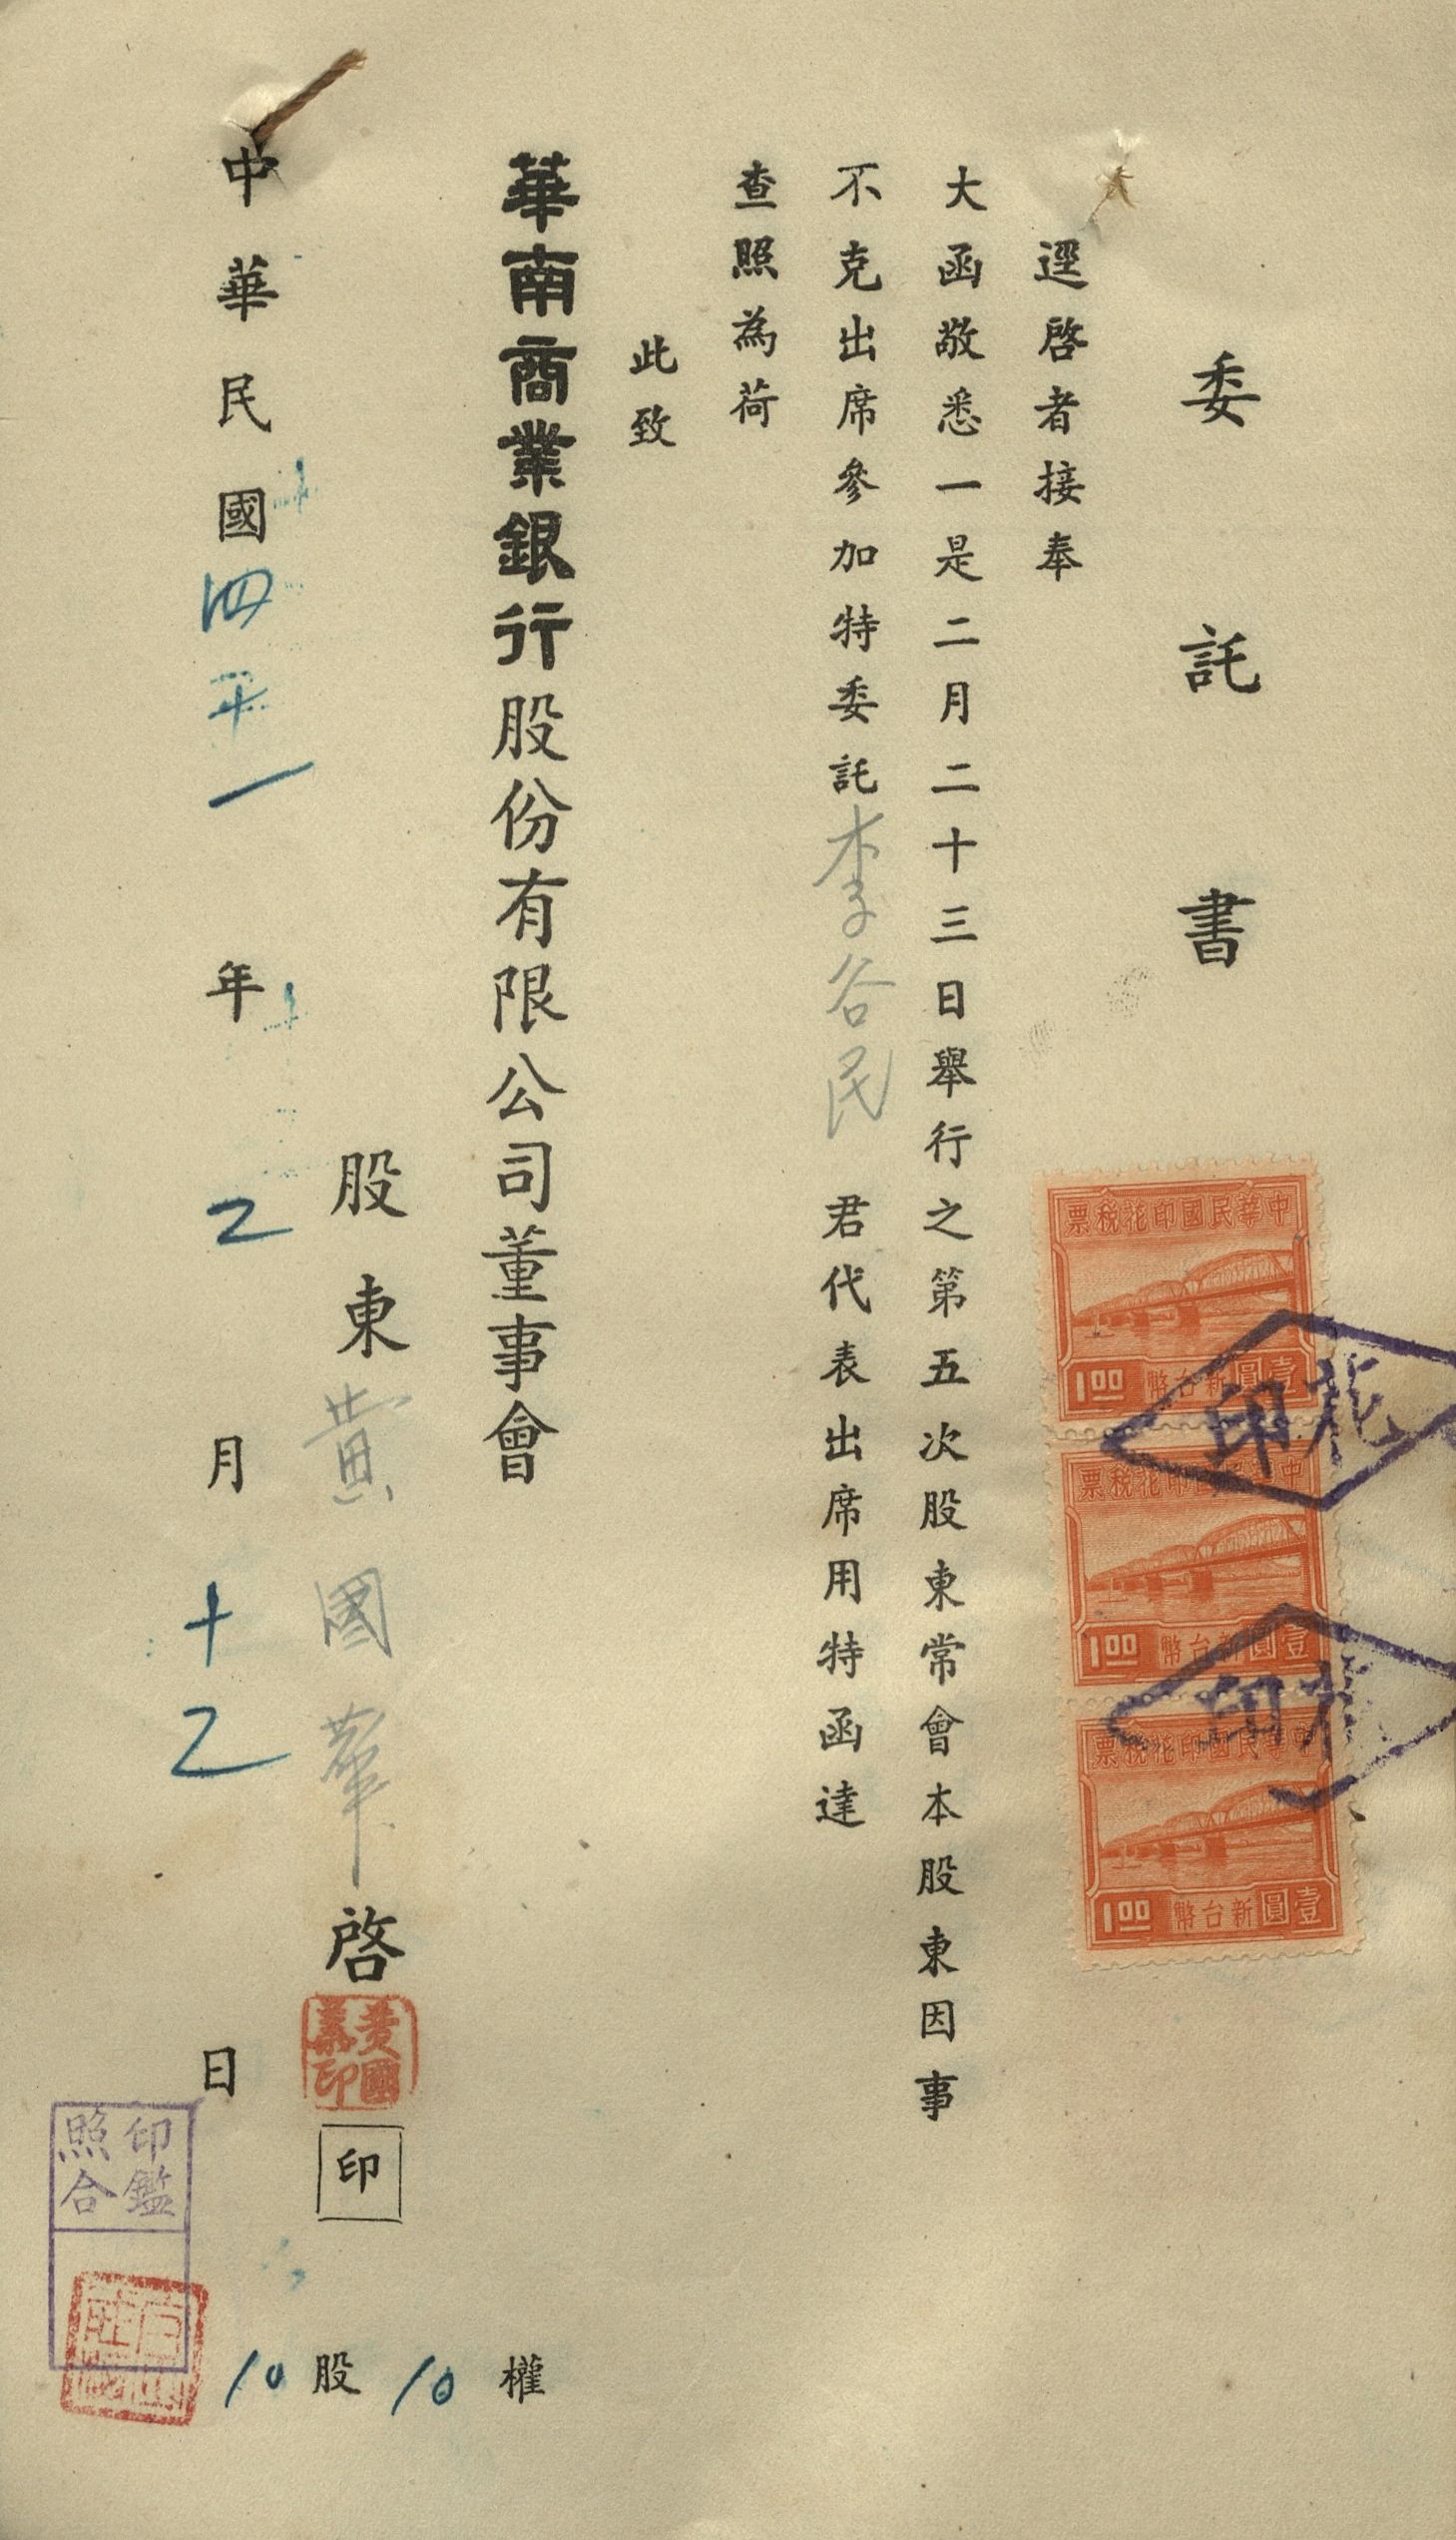 委託書
逕啓者接奉
大函敬悉一是二月二十三日舉行之第五次股東常會本股東因事
不克出席參加特委託李谷民 君代表出席用特函達
查照為荷
此致
華南商業銀行股份有限公司董事會
股東黄國華啓
黄國華印
印
中華民國四十一年2月十乙日
10股10權
印鑑照合
票稅花印國民華中
1.00 幣台新圓壹
票稅花印國民華中
1.00 幣台新圓壹
票稅花印國民華中
1.00 幣台新圓壹
印花
印花